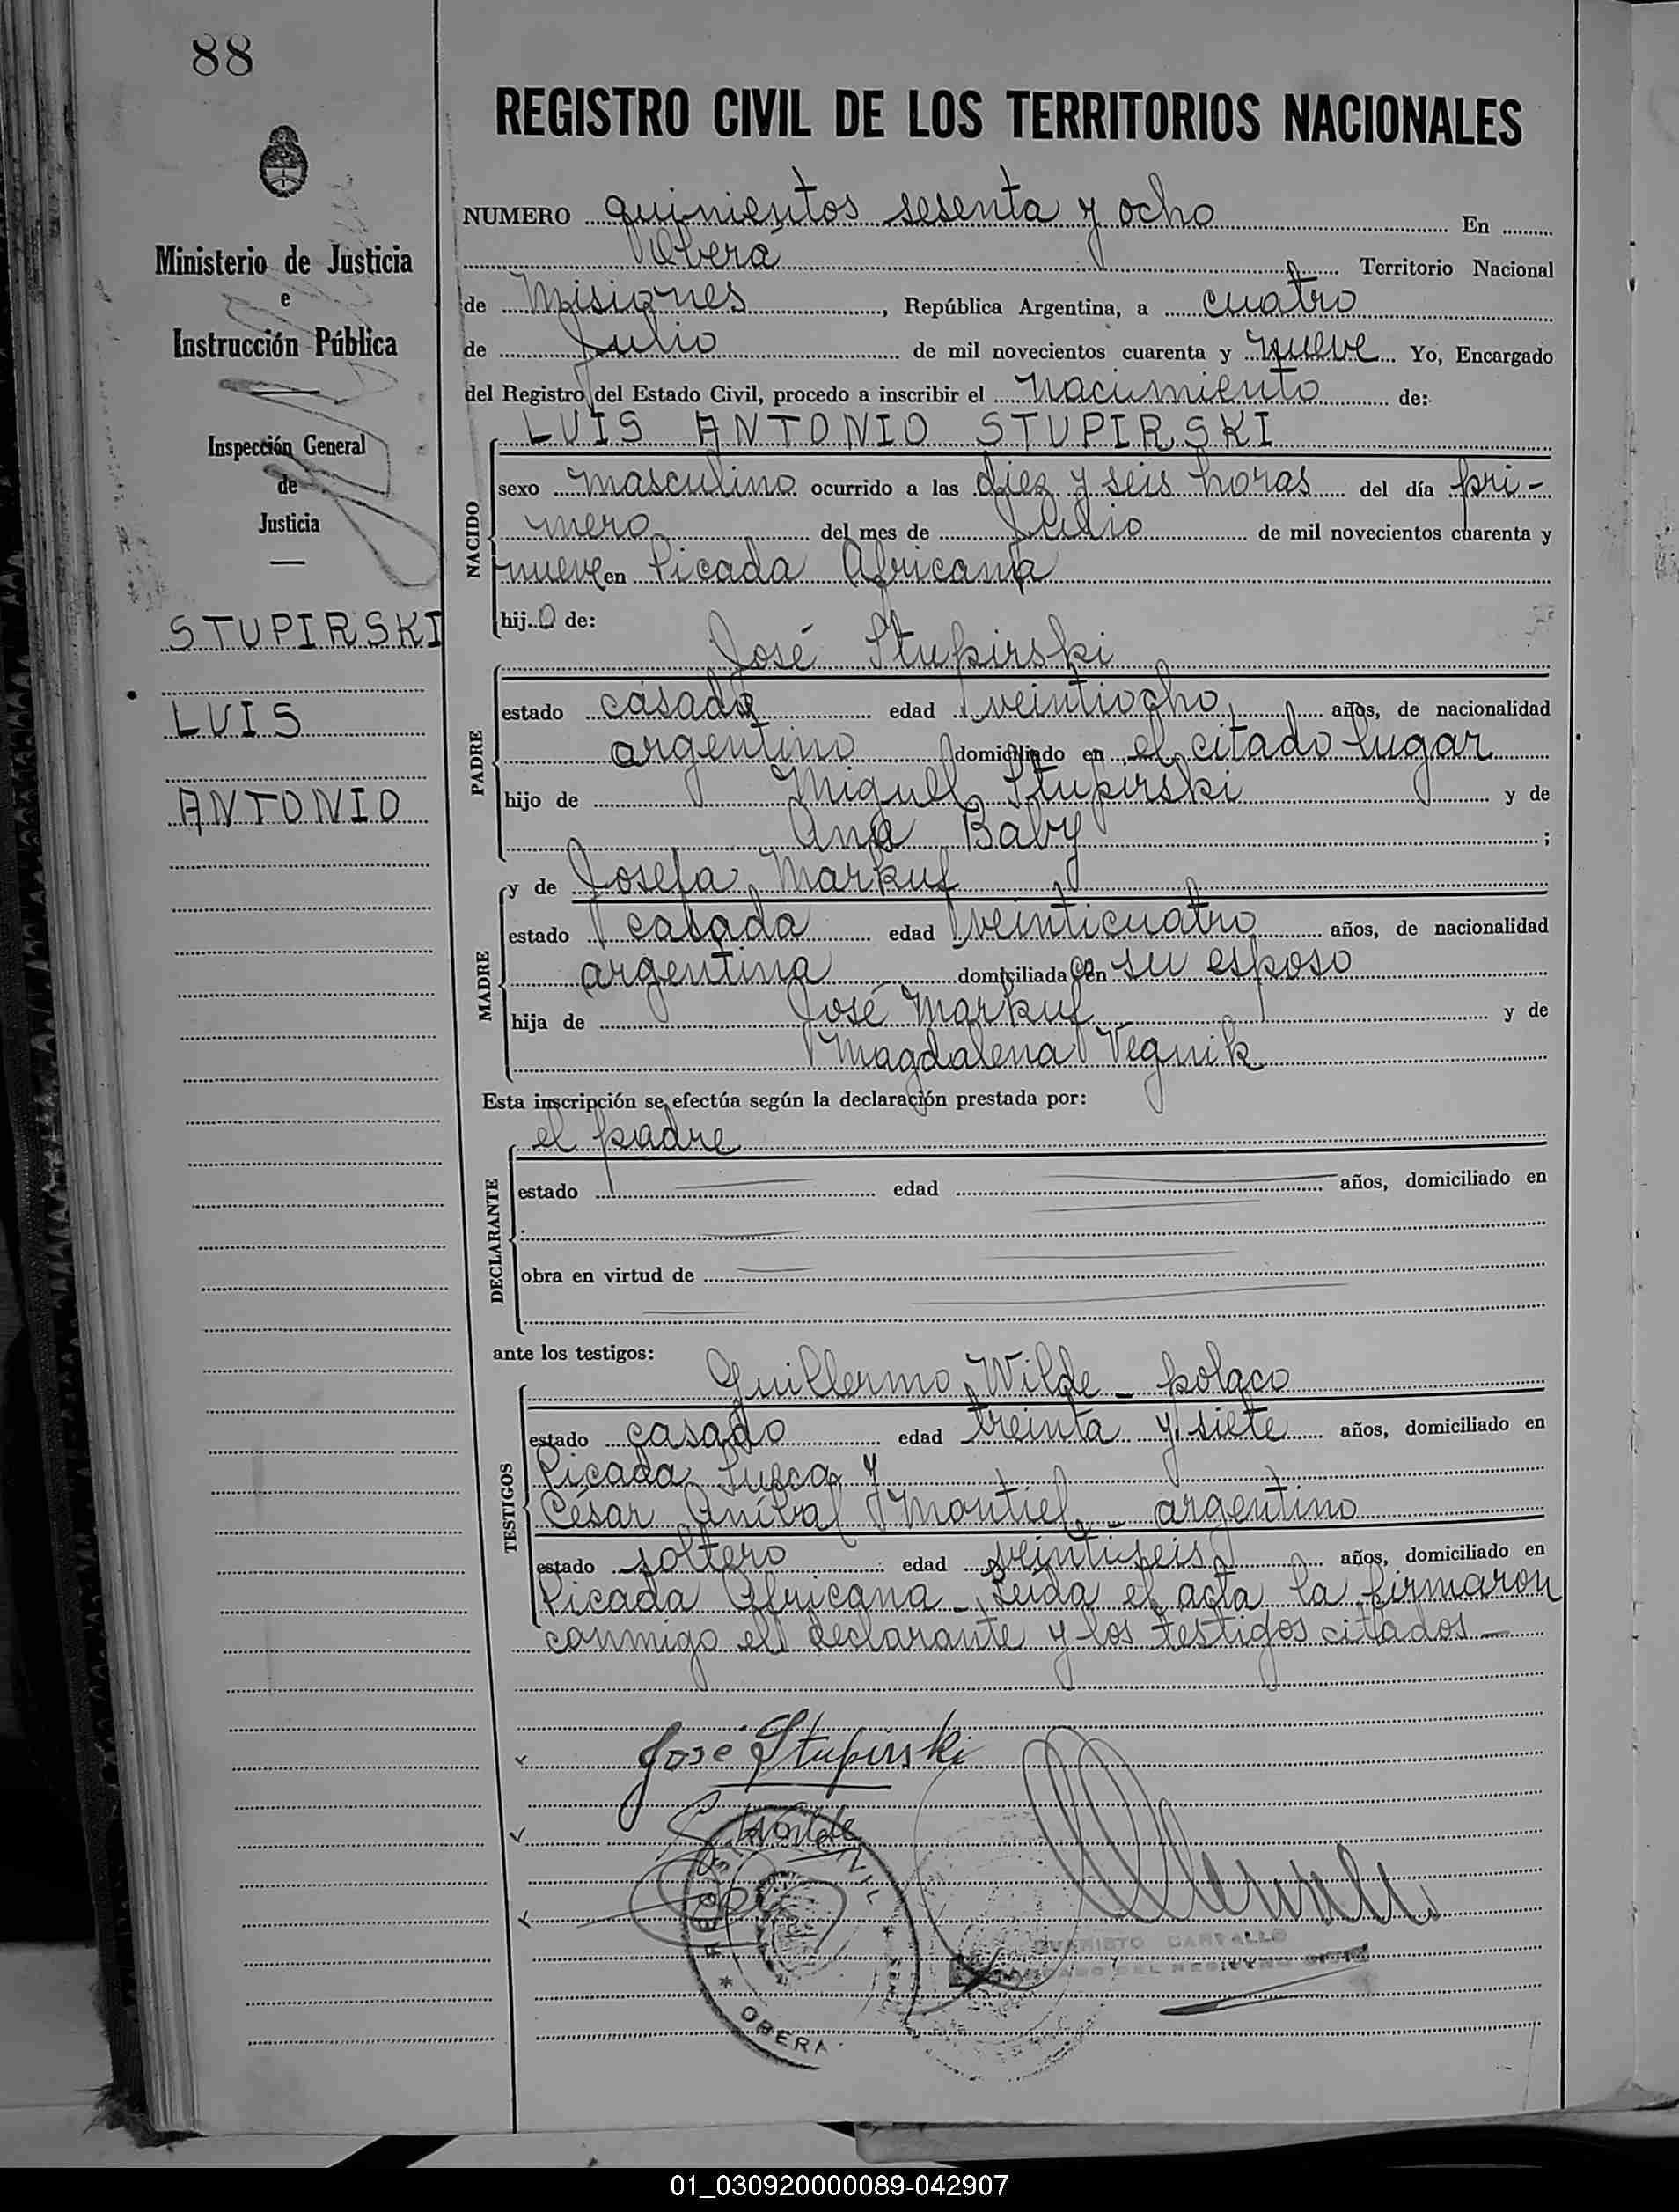 88
Ministerio de Justicia
e
Instrucción Pública
Inspección General
de
Justicia
STUPIRSKI
LUIS
ANTONIO
REGISTRO CIVIL DE LOS TERRITORIOS NACIONALES
NUMERO quinientos sesenta y ocho En
Oberá Territorio Nacional
de Misiones, República Argentina, a cuatro
de Julio de mil novecientos cuarenta y nueve Yo, Encargado
del Registro del Estado Civil, procedo a inscribir el nacimiento de:
LUIS ANTONIO STUPIRSKI
NACIDO
sexo masculino ocurrido a las diez y seis horas del día pri-
mero del mes de Julio de mil novecientos cuarenta y
nueve en Picada Africana
hijo de:
José Stupirski
PADRE
estado casado edad veintiocho años, de nacionalidad
argentino domiciliado en el citado lugar
hijo de Miguel Stupirski y de
Ana Baby ;
y de Josefa Markuf
MADRE
estado casada edad veinticuatro años, de nacionalidad
argentina domiciliada con su esposo
hija de José Markuf y de
Magdalena Vegnik
Esta inscripción se efectúa según la declaración prestada por:
el padre
DECLARANTE
estado edad años, domiciliado en
obra en virtud de
ante los testigos:
Guillermo Wilde - polaco
TESTIGOS
estado casado edad treinta y siete años, domiciliado en
Picada Sueca y
César Aníbal Montiel - argentino
estado soltero edad veintiseis años, domiciliado en
Picada Africana - Leída el acta la firmaron
conmigo el declarante y los testigos citados -
José Stupirski
G. Wilde
REGISTRO CIVIL
* OBERA
EVARISTO CARVALLO
ENCARGADO DEL REGISTRO CIVIL
01_030920000089-042907